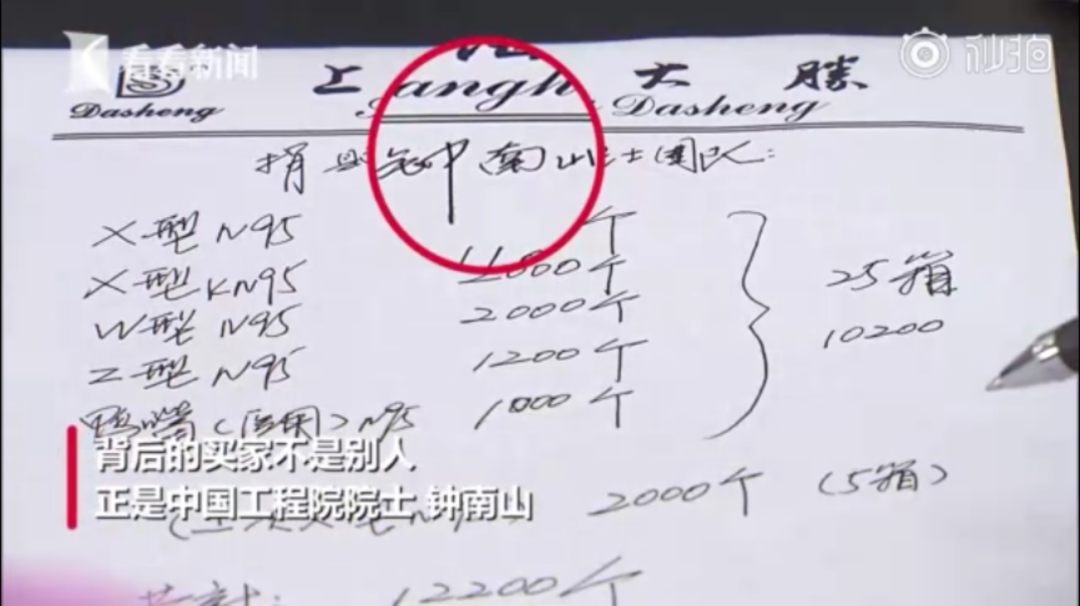 看看新闻
秒拍
上 大 勝
Dasheng angh Dasheng
捐 钟南山 士团队:
X型 N95 个
X型 KN95 个
W型 N95 2000个
Z型 N95 1200个
鸭嘴(医用) N95 1000个
25箱
10200
背后的买家不是别人
正是中国工程院院士 钟南山
2000个 (5箱)
共计: 12200个